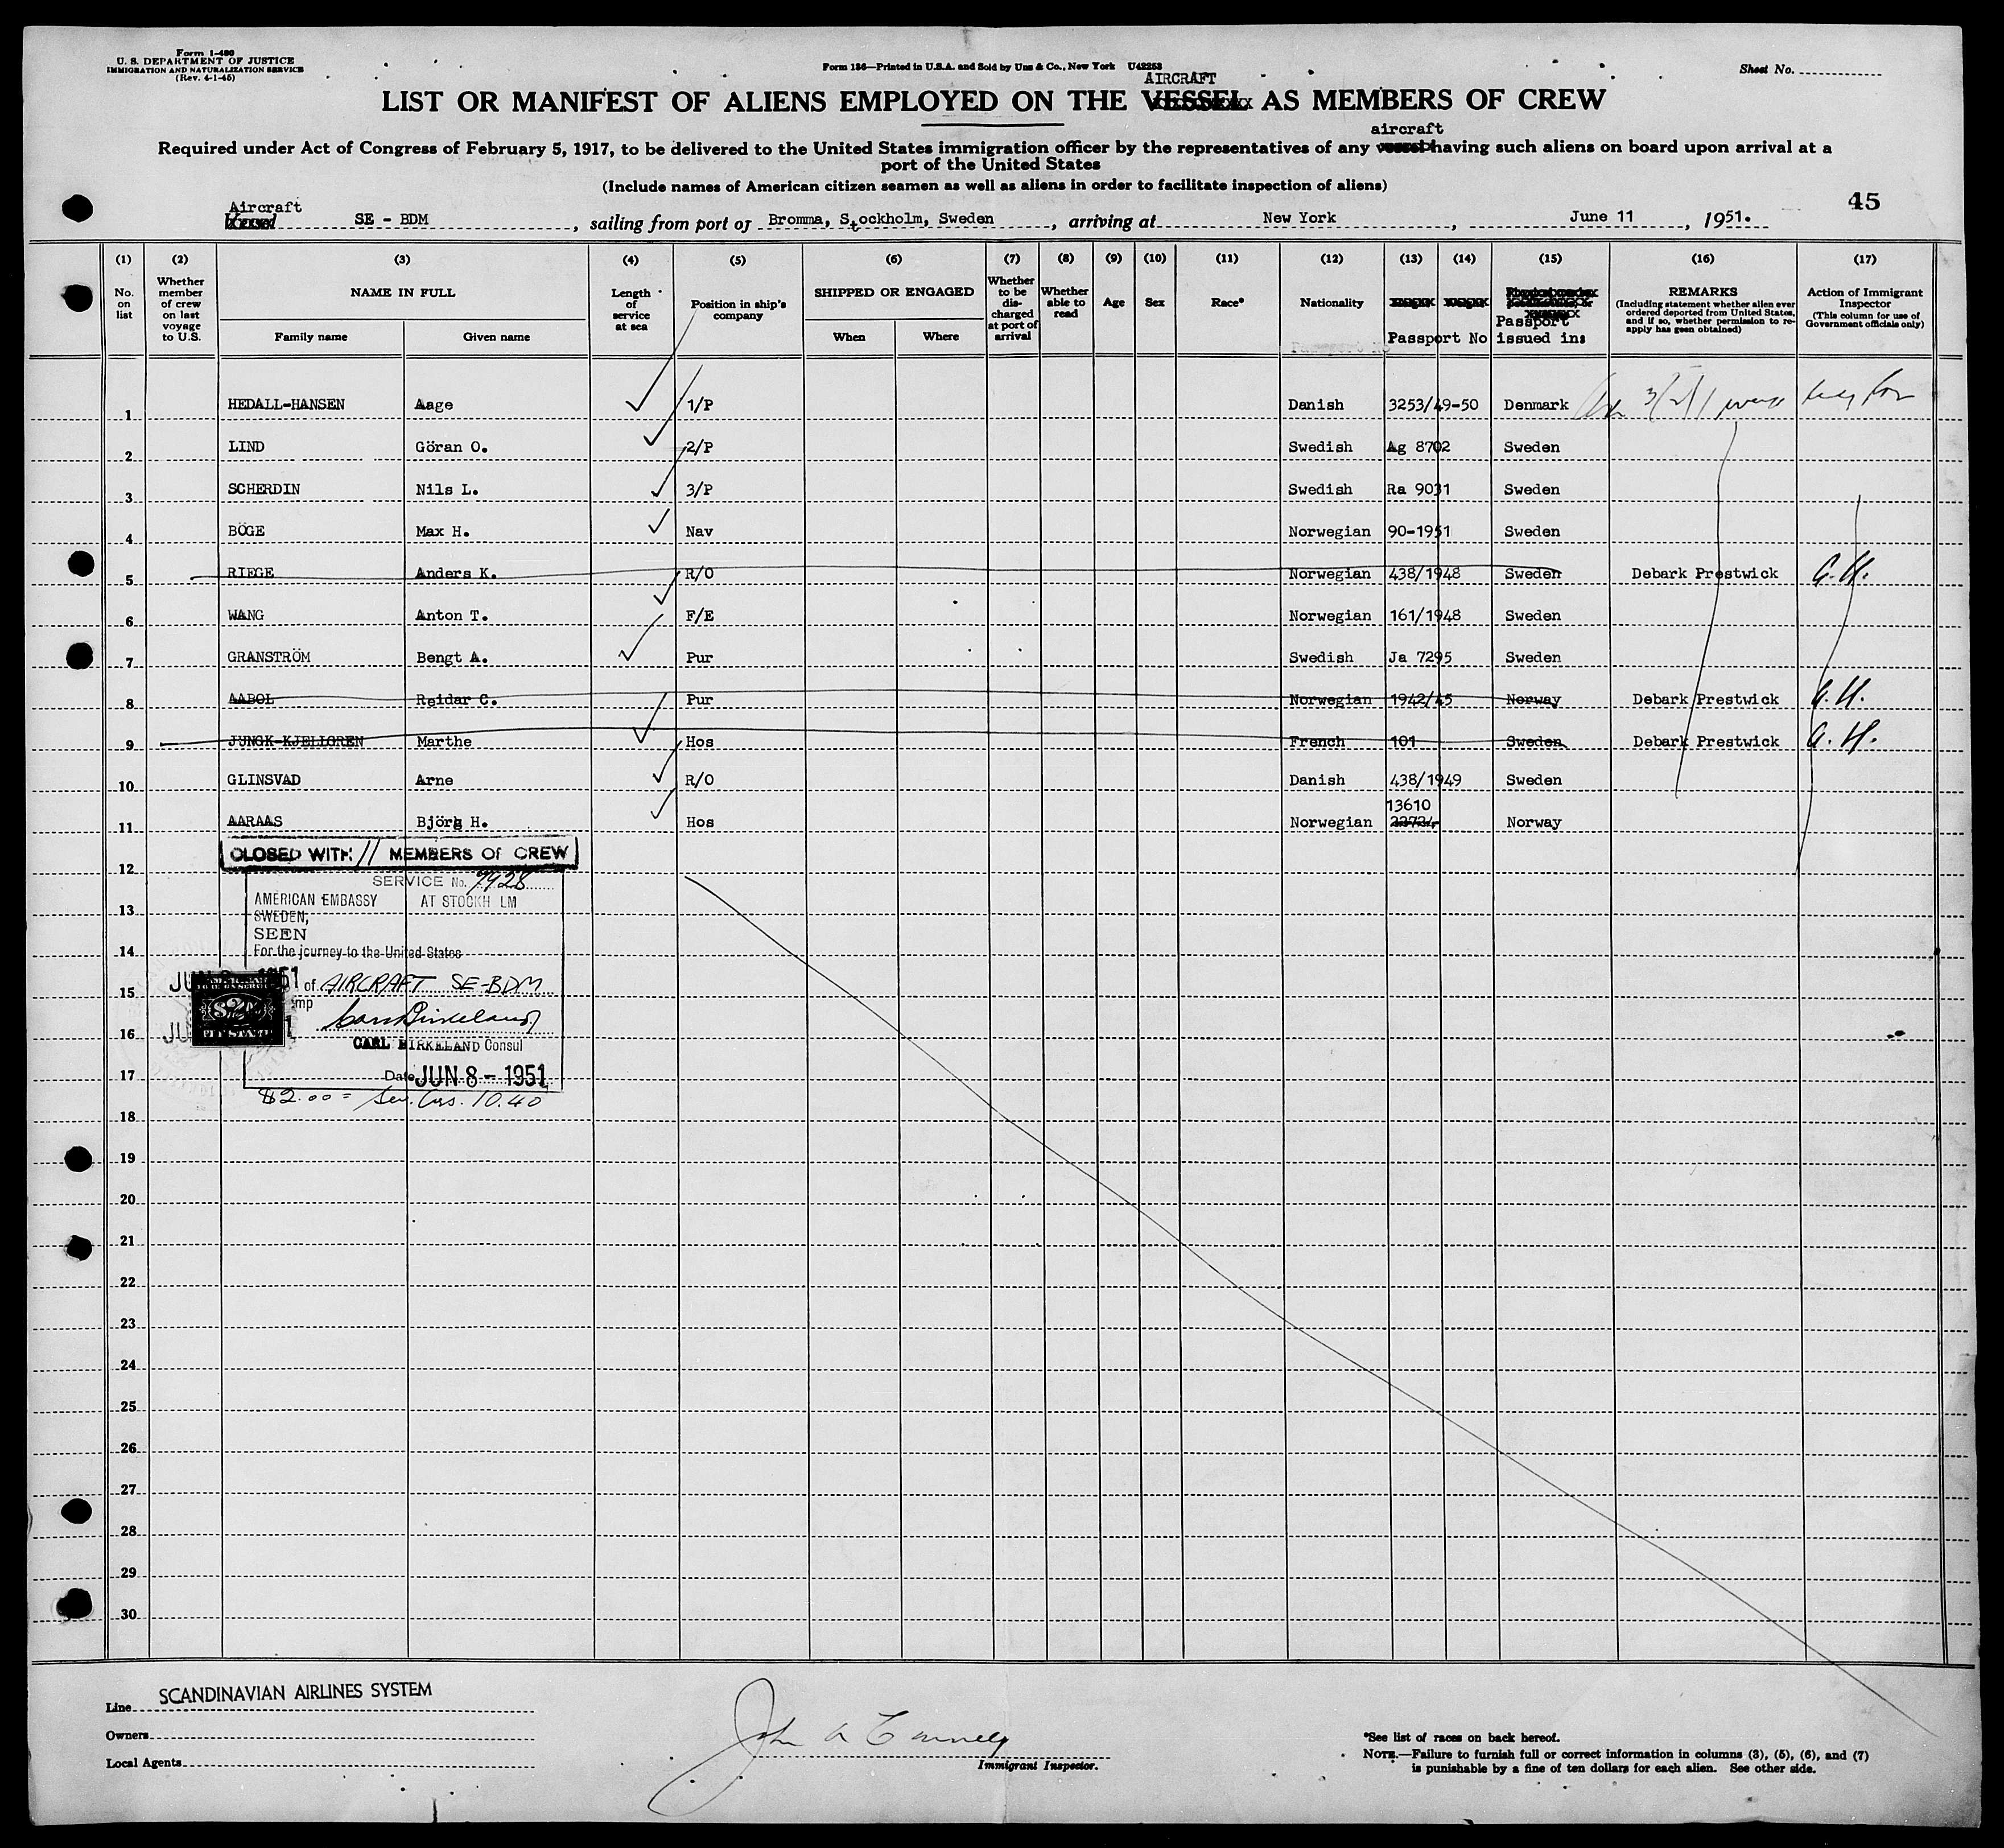 Form I-480
U. S. DEPARTMENT OF JUSTICE
IMMIGRATION AND NATURALIZATION SERVICE
(Rev. 4-1-45)
Form 136—Printed in U.S.A. and Sold by Unz & Co., New York U42253
Sheet No.
AIRCRAFT
LIST OR MANIFEST OF ALIENS EMPLOYED ON THE VESSEL AS MEMBERS OF CREW
aircraft
Required under Act of Congress of February 5, 1917, to be delivered to the United States immigration officer by the representatives of any vessel having such aliens on board upon arrival at a
port of the United States
(Include names of American citizen seamen as well as aliens in order to facilitate inspection of aliens)
45
Aircraft
Vessel SE - BDM, sailing from port of Bromma, Stockholm, Sweden, arriving at New York, June 11, 1951.
(1) (2) (3) (4) (5) (6) (7) (8) (9) (10) (11) (12) (13) (14) (15) (16) (17)
No. on list
Whether member of crew on last voyage to U.S.
NAME IN FULL
Family name Given name
Length of service at sea
Position in ship's company
SHIPPED OR ENGAGED
When Where
Whether to be discharged at port of arrival
Whether able to read
Age
Sex
Race*
Nationality
Passport No
Passport issued in:
REMARKS
(Including statement whether alien ever ordered deported from United States, and if so, whether permission to reapply has been obtained)
Action of Immigrant Inspector
(This column for use of Government officials only)
1 HEDALL-HANSEN Aage 1/P Danish 3253/49-50 Denmark
2 LIND Göran O. 2/P Swedish Ag 8702 Sweden
3 SCHERDIN Nils L. 3/P Swedish Ra 9031 Sweden
4 BÖGE Max H. Nav Norwegian 90-1951 Sweden
5 RIEGE Anders K. R/O Norwegian 438/1948 Sweden Debark Prestwick G.H.
6 WANG Anton T. F/E Norwegian 161/1948 Sweden
7 GRANSTRÖM Bengt A. Pur Swedish Ja 7295 Sweden
8 AABOL Reidar C. Pur Norwegian 1942/45 Norway Debark Prestwick G.H.
9 JUNGK-KJELLGREN Marthe Hos French 101 Sweden Debark Prestwick G.H.
10 GLINSVAD Arne R/O Danish 438/1949 Sweden
13610
11 AARAAS Björg H. Hos Norwegian Norway
CLOSED WITH 11 MEMBERS OF CREW
12
SERVICE No. 7928
AMERICAN EMBASSY AT STOCKH LM
13
SWEDEN,
SEEN
14
For the journey to the United States
15
of AIRCRAFT SE-BDM
16
CARL BIRKELAND Consul
17
Date JUN 8 - 1951
$2.00 = Sw. Crs. 10.40
18
19
20
21
22
23
24
25
26
27
28
29
30
Line SCANDINAVIAN AIRLINES SYSTEM
Owners
Local Agents
Immigrant Inspector.
*See list of races on back hereof.
NOTE.—Failure to furnish full or correct information in columns (3), (5), (6), and (7)
is punishable by a fine of ten dollars for each alien. See other side.